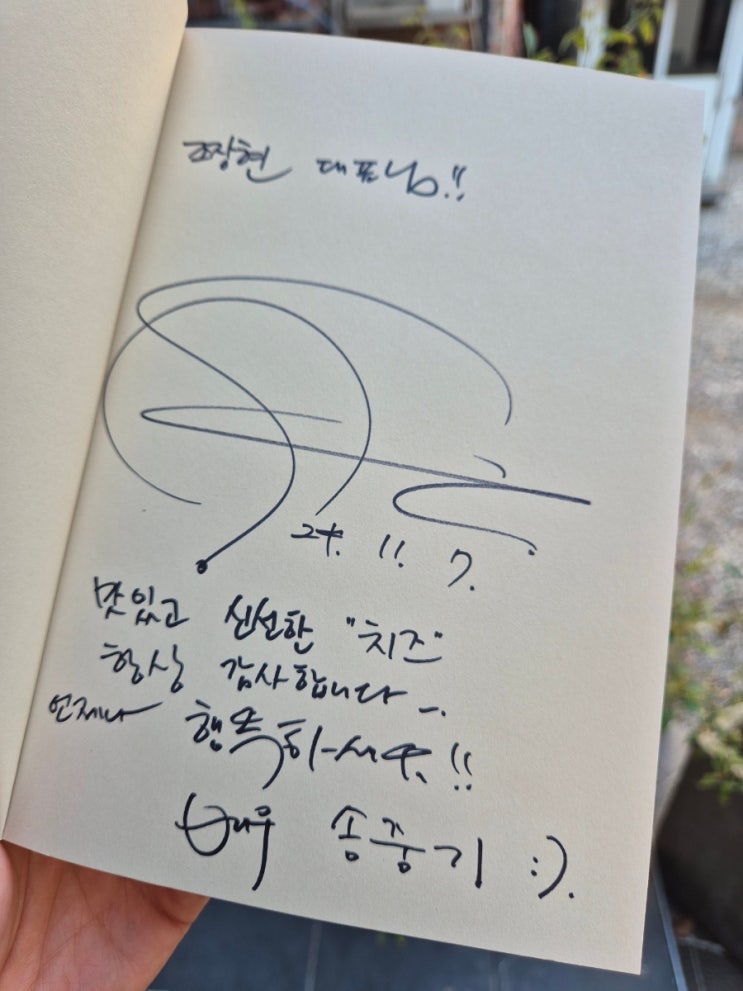 조장현 대표님!!
24. 11. 7.
맛있고 신선한 "치즈"
항상 감사합니다-.
언제나 행복하세요!!
배우 송중기 :).